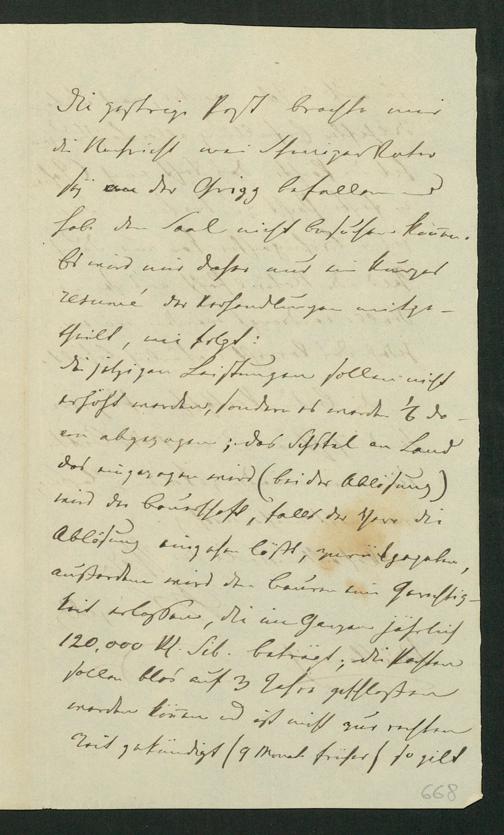 Die gestrige Post brachte mir
die Nachricht mein Schwiegervater
sey an der Grippe befallen und
habe den Saal nicht besuchen können.
Es wird mir daher nur ein kurzes
resumé der Verhandlungen mitge-
theilt, wie folgt:
die jetzigen Leistungen sollen nicht
erhöht werden, sondern es werden 1/6 da-
von abgezogen; das Sechstel an Land
das eingezogen wird (bei der Ablösung)
wird der Bauerschaft, falls der Herr die
Ablösung eingehen läßt, zurückgegeben,
außerdem wird den Bauern eine Gerechtig-
keit erlassen, die im Ganzen jährlich
120,000 Rbl. Silb. beträgt; die Pachten
sollen blos auf 3 Jahre geschlossen
werden können und ist nicht zur rechten
Zeit gekündigt (9 Monate früher) so gilt
668